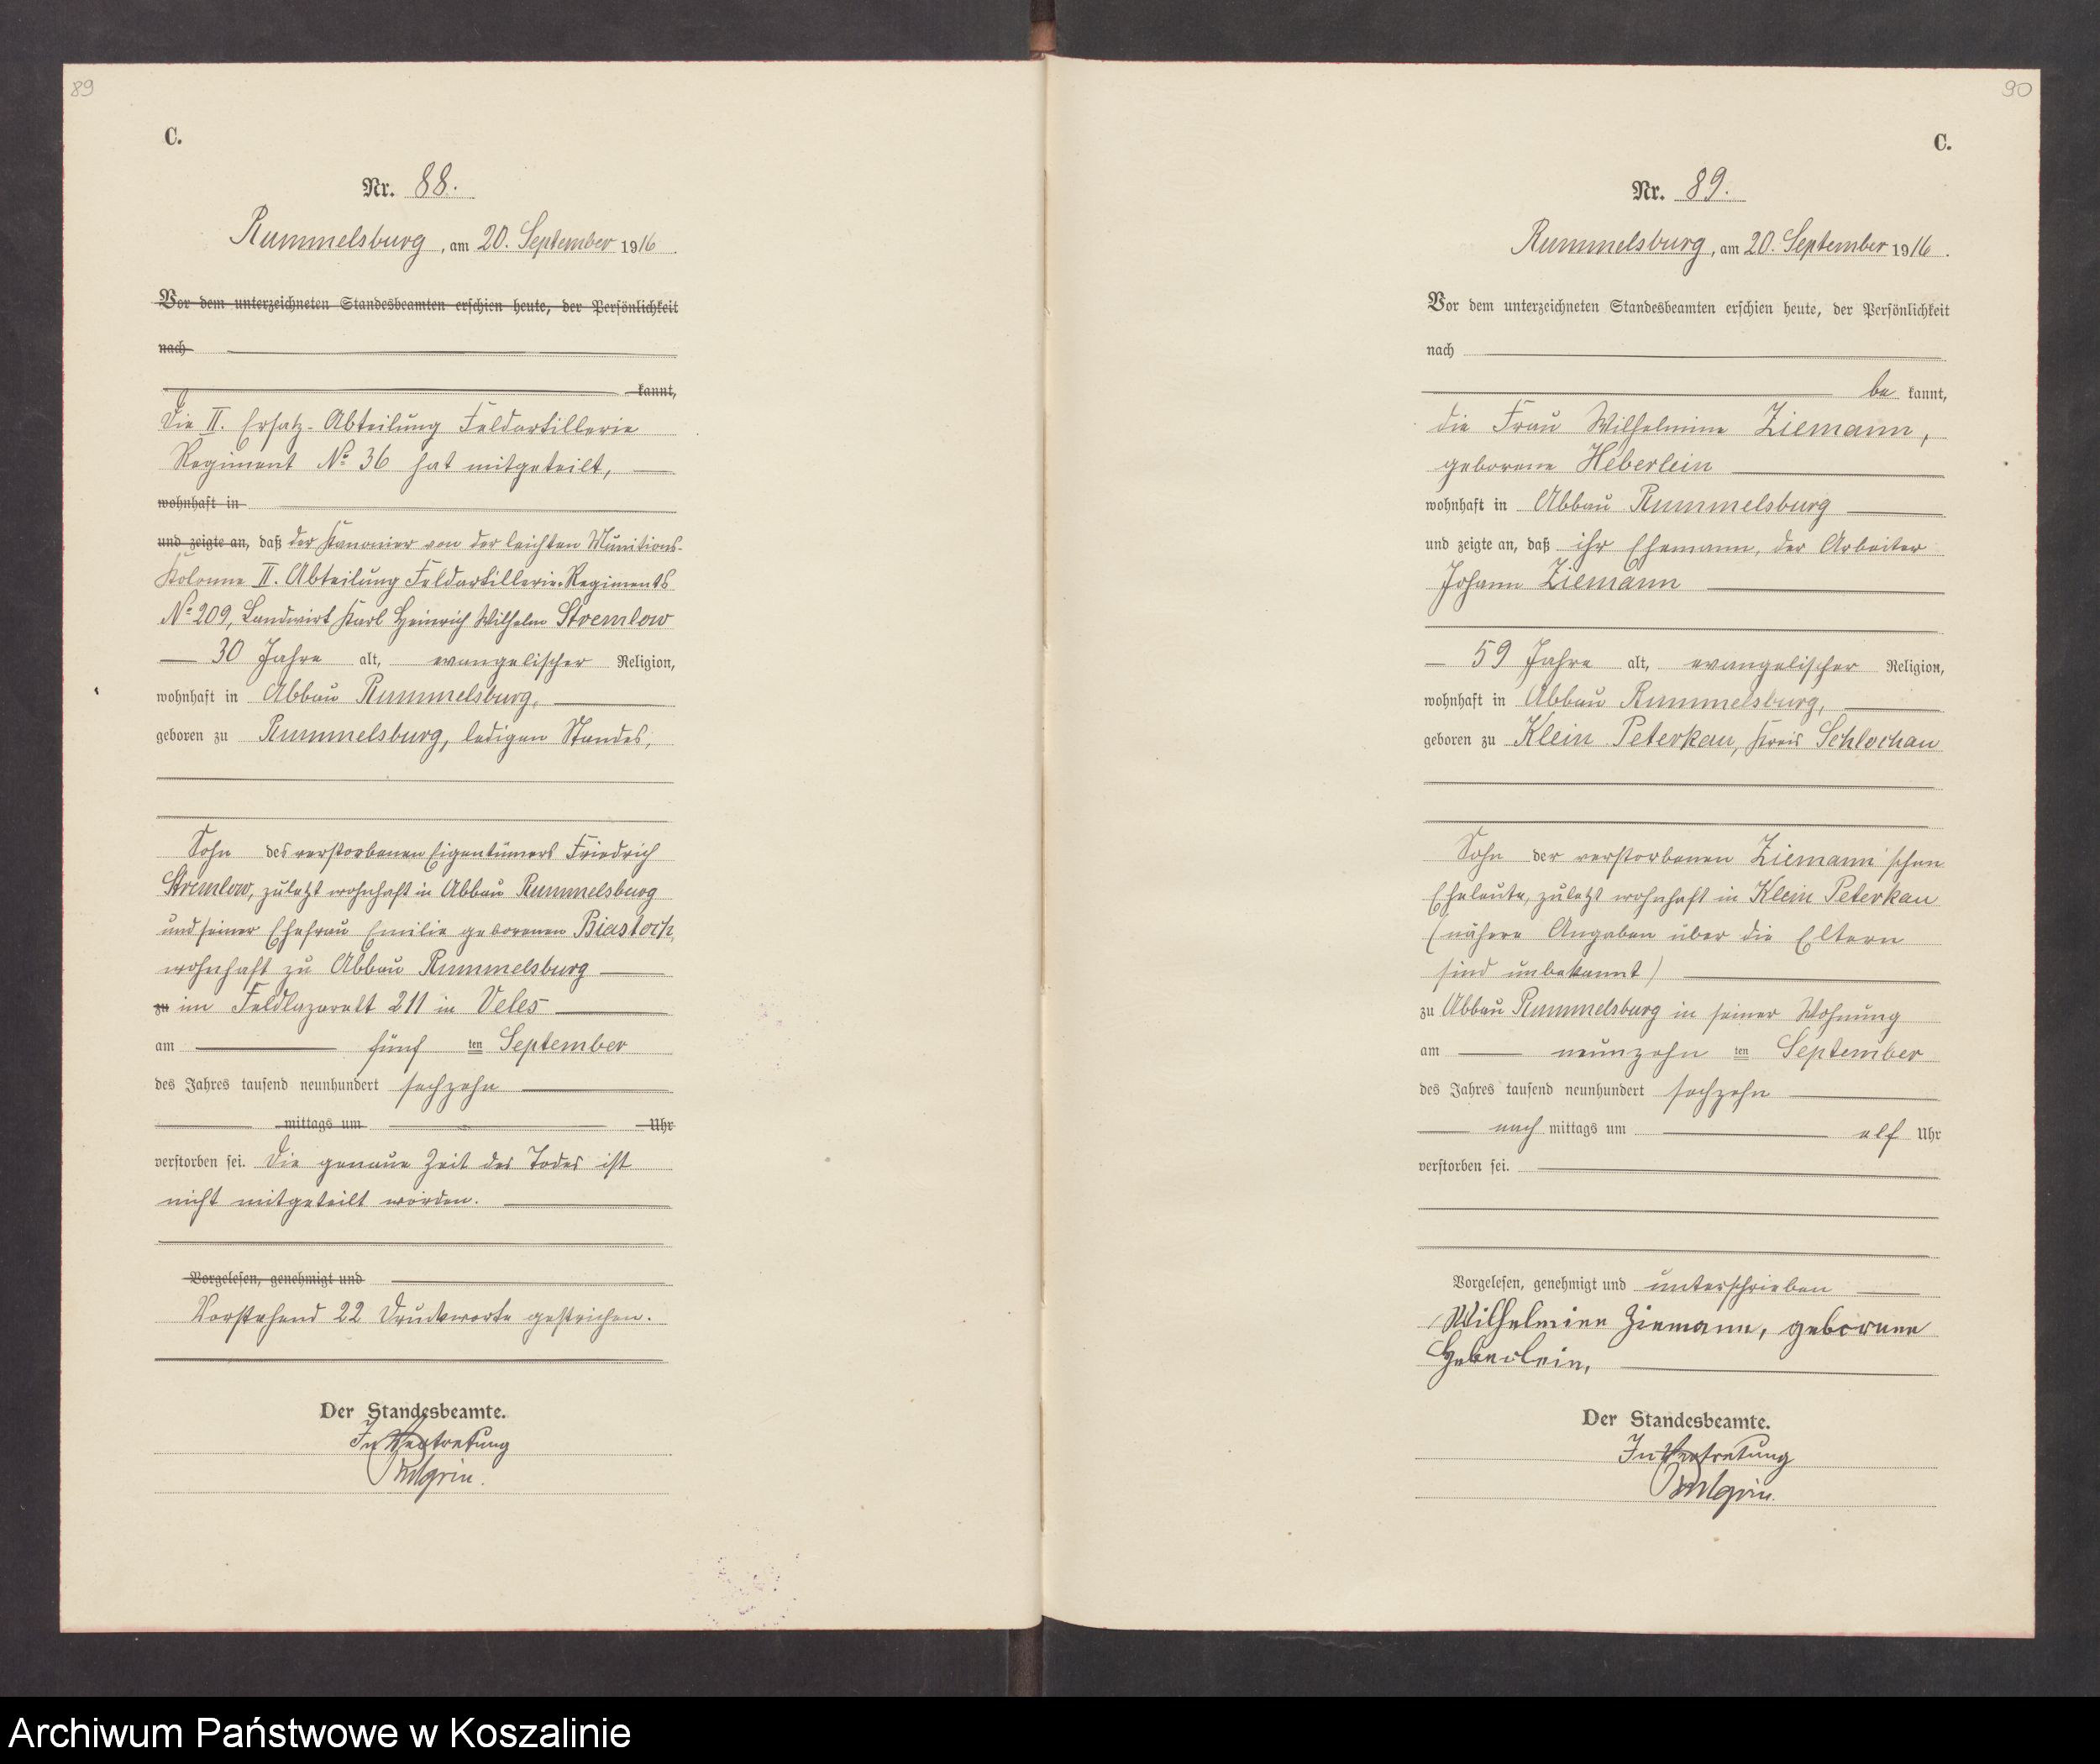 89
C.
Nr. 88.
Rummelsburg, am 20. September 1916.
Vor dem unterzeichneten Standesbeamten erschien heute, der Persönlichkeit
nach
kannt,
die II. Ersatz-Abteilung Feldartillerie
Regiment No 36 hat mitgeteilt,
wohnhaft in
und zeigte an, daß der Kanonier von der leichten Munitions-
Kolonne II. Abteilung Feldartillerie-Regiments
No 209, Landwirt Karl Heinrich Wilhelm Stremlow
30 Jahre alt, evangelischer Religion,
wohnhaft in Abbau Rummelsburg,
geboren zu Rummelsburg, ledigen Standes,
Sohn des verstorbenen Eigentümers Friedrich
Stremlow, zuletzt wohnhaft in Abbau Rummelsburg
und seiner Ehefrau Emilie geborenen Biastoch,
wohnhaft zu Abbau Rummelsburg
zu im Feldlazarett 211 in Veles
am fünf ten September
des Jahres tausend neunhundert sechzehn
mittags um Uhr
verstorben sei. Die genaue Zeit des Todes ist
nicht mitgeteilt worden.
Vorgelesen, genehmigt und
Vorstehend 22 Druckworte gestrichen.
Der Standesbeamte.
In Vertretung
90
C.
Nr. 89.
Rummelsburg, am 20. September 1916.
Vor dem unterzeichneten Standesbeamten erschien heute, der Persönlichkeit
nach
be kannt,
die Frau Wilhelmine Ziemann,
geborene Heberlein
wohnhaft in Abbau Rummelsburg
und zeigte an, daß ihr Ehemann, der Arbeiter
Johann Ziemann
59 Jahre alt, evangelischer Religion,
wohnhaft in Abbau Rummelsburg,
geboren zu Klein Peterkau, Kreis Schlochau
Sohn der verstorbenen Ziemann'schen
Eheleute, zuletzt wohnhaft in Klein Peterkau
(nähere Angaben über die Eltern
sind unbekannt)
zu Abbau Rummelsburg in seiner Wohnung
am neunzehn ten September
des Jahres tausend neunhundert sechzehn
nach mittags um elf Uhr
verstorben sei.
Vorgelesen, genehmigt und unterschrieben
Wilhelmine Ziemann, geborene
Heberlein,
Der Standesbeamte.
In Vertretung
Archiwum Państwowe w Koszalinie